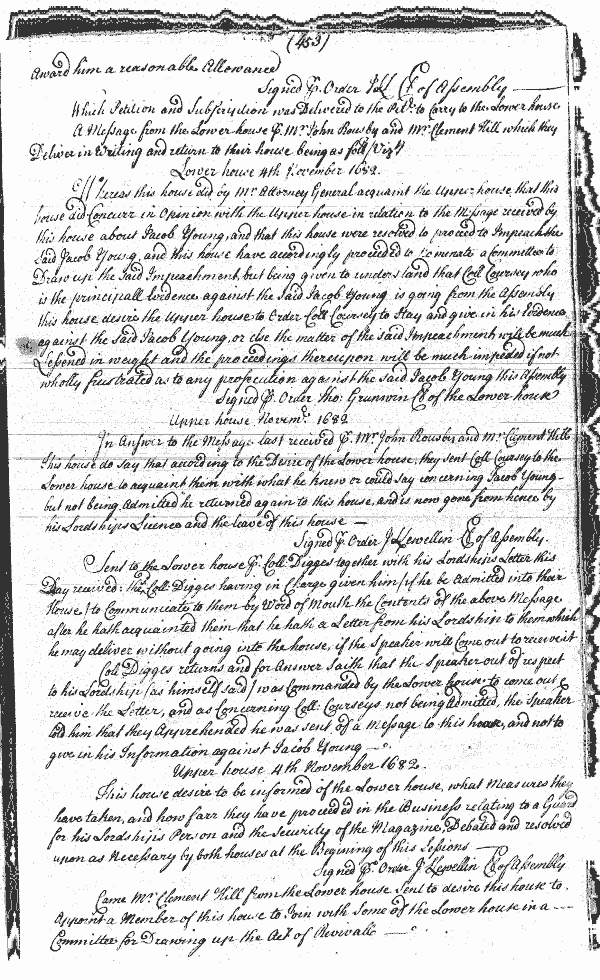 (453)
Award him a reasonable Allowance
Signed P. Order Jll Cl of Assembly
Which Petition and Subscription was Delivered to the Petr. to Carry to the Lower house
A Message from the Lower house P. Mr. John Rousby and Mr. Clement Hill which they
Deliver in Writing and return to their house being as foll Vizt
Lower house 4th November 1682.
Whereas this house did by Mr. Attorney General acquaint the Upper house, that this
house did Concurr in Opinion with the Upper house in relation to the Message received by
this house about Jacob Young, and that this house were resolved to proceed to Impeach the
Said Jacob Young, and this house have accordingly proceeded to nominate a Committee to
Draw up the Said Impeachment, but being given to understand that Coll Coursey who
is the principall Evidence against the Said Jacob Young is going from the Assembly
this house desire the Upper house to Order Coll Coursey to Stay and give in his Evidence
against the Said Jacob Young, or else the matter of the Said Impeachment will be much
Lessened in weight and the proceedings thereupon will be much impeded if not
wholly frustrated as to any prosecution against the Said Jacob Young this Assembly
Signed P. Order Tho: Grunwin Cl of the Lower house
Upper house Novemr. 1682
In Answer to the Message last received P. Mr. John Rousby and Mr. Clement Hill
This house do Say that according to the Desire of the Lower house, they sent Coll Coursey to the
Lower house to acquaint them with what he knew or could Say concerning Jacob Young
but not being Admitted he returned again to this house, and is now gone from hence by
his Lordships Licence and the leave of this house —
Signed P. Order J Llewellin Cl of Assembly.
Sent to the Lower house P. Coll: Digges together with his Lordships Letter this
Day received: The Coll Digges having in Charge given him (if he be Admitted into their
House) to Communicate to them by Word of Mouth the Contents of the above Message
after he hath acquainted them that he hath a Letter from his Lordship to them which
he may deliver without going into the house, if the Speaker will Come out to receive it
Coll Digges returns and for Answer Saith that the Speaker out of respect
to his Lordship (as himself said) was Commanded by the Lower house to come out &
receive the Letter, and as Concerning Coll: Courseys not being Admitted, the Speaker
told him that they Apprehended he was sent of a Message to this house, and not to
give in his Information against Jacob Young —
Upper house 4th November 1682.
This house desire to be informed of the Lower house, what Measures they
have taken, and how farr they have proceeded in the Business relating to a Guard
for his Lordships Person and the Security of the Magazine, Debated and resolved
upon as Necessary by both houses at the Begining of this Sessions —
Signed P. Order J Llewellin Cl of Assembly
Came Mr. Clement Hill from the Lower house Sent to desire this house to
Appoint a Member of this house to Join with Some of the Lower house in a
Committee for Drawing up the Act of Revivall —